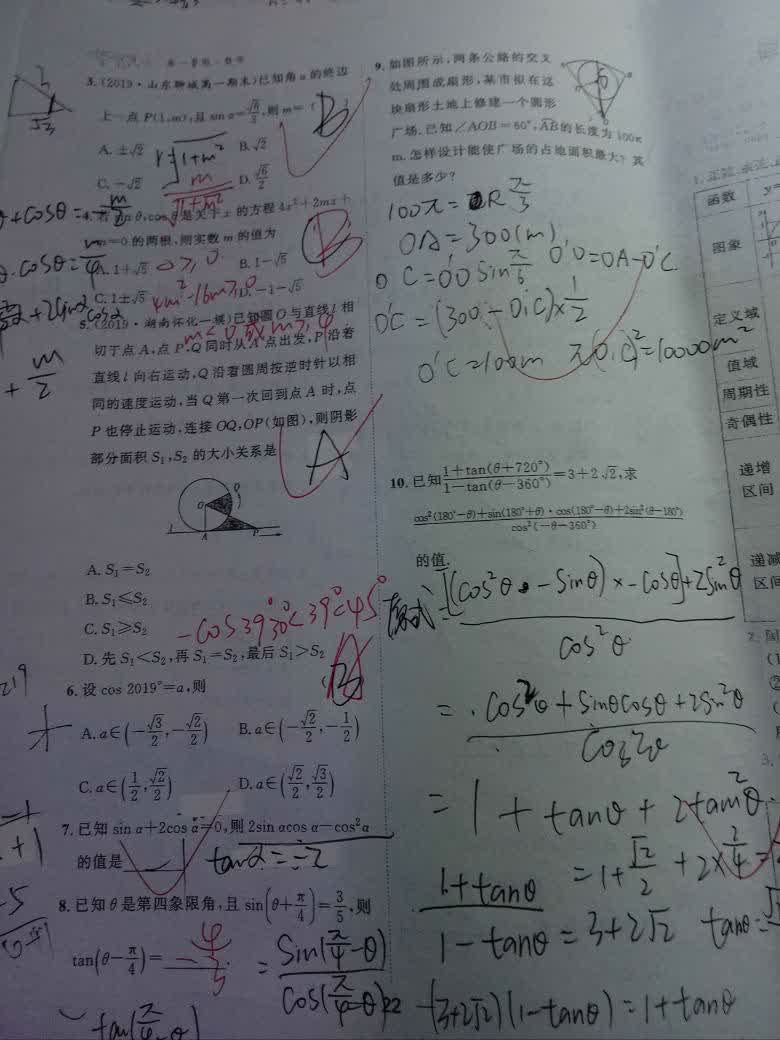 3.(2019·山东聊城高一期末)已知角α的终边
上一点P(1,m),且sin α=√6/3,则m=( B )
A. ±√2 B. √2
C. -√2 D. √6/2
r=√1+m²
m/√1+m²
的方程4x²+2mx+
m=0的两根,则实数m的值为
B
A. 1+√5 B. 1-√5
C. 1±√5 D. -1-√5
4m²-16m≥0
m≤0或m≥4
5.(2019·湖南怀化一模)已知圆O与直线l相
切于点A,点P,Q同时从A点出发,P沿着
直线l向右运动,Q沿着圆周按逆时针以相
同的速度运动,当Q第一次回到点A时,点
P也停止运动,连接OQ,OP(如图),则阴影
部分面积S₁,S₂的大小关系是
A
O Q l A P
A. S₁=S₂
B. S₁≤S₂
C. S₁≥S₂
D. 先S₁<S₂,再S₁=S₂,最后S₁>S₂
-cos39° 30°<39°<45°
6. 设cos 2019°=a,则
B
A. a∈(-√3/2,-√2/2) B. a∈(-√2/2,-1/2)
C. a∈(1/2,√2/2) D. a∈(√2/2,√3/2)
7. 已知sin α+2cos α=0,则2sin αcos α-cos²α
的值是
tanα=-2
8. 已知θ是第四象限角,且sin(θ+π/4)=3/5,则
tan(θ-π/4)=
=sin(π/4-θ)/cos(π/4-θ)
tan(π/4-θ)
22
9. 如图所示,两条公路的交叉
处周围成扇形,某市拟在这
块扇形土地上修建一个圆形
广场.已知∠AOB=60°,AB的长度为100π
m.怎样设计能使广场的占地面积最大?其
值是多少?
100π=R π/3
OA=300(m)
O'C=O'O sin π/6 O'O=OA-O'C
O'C=(300-O'C)×1/2
O'C=100m π(O'C)²=10000m²
10. 已知1+tan(θ+720°)/1-tan(θ-360°)=3+2√2,求
cos²(180°-θ)+sin(180°+θ)·cos(180°-θ)+2sin²(θ-180°)/cos²(-θ-360°)
的值.
原式=[(cos²θ-sinθ)×-cosθ]+2sin²θ/cos²θ
=cos²θ+sinθcosθ+2sin²θ/cos²θ
=1+tanθ+2tan²θ
=1+√2/2+2×2/4=
1+tanθ/1-tanθ=3+2√2 tanθ=
(3+2√2)(1-tanθ)=1+tanθ
函数
图象
定义域
值域
周期性
奇偶性
递增
区间
递减
区间